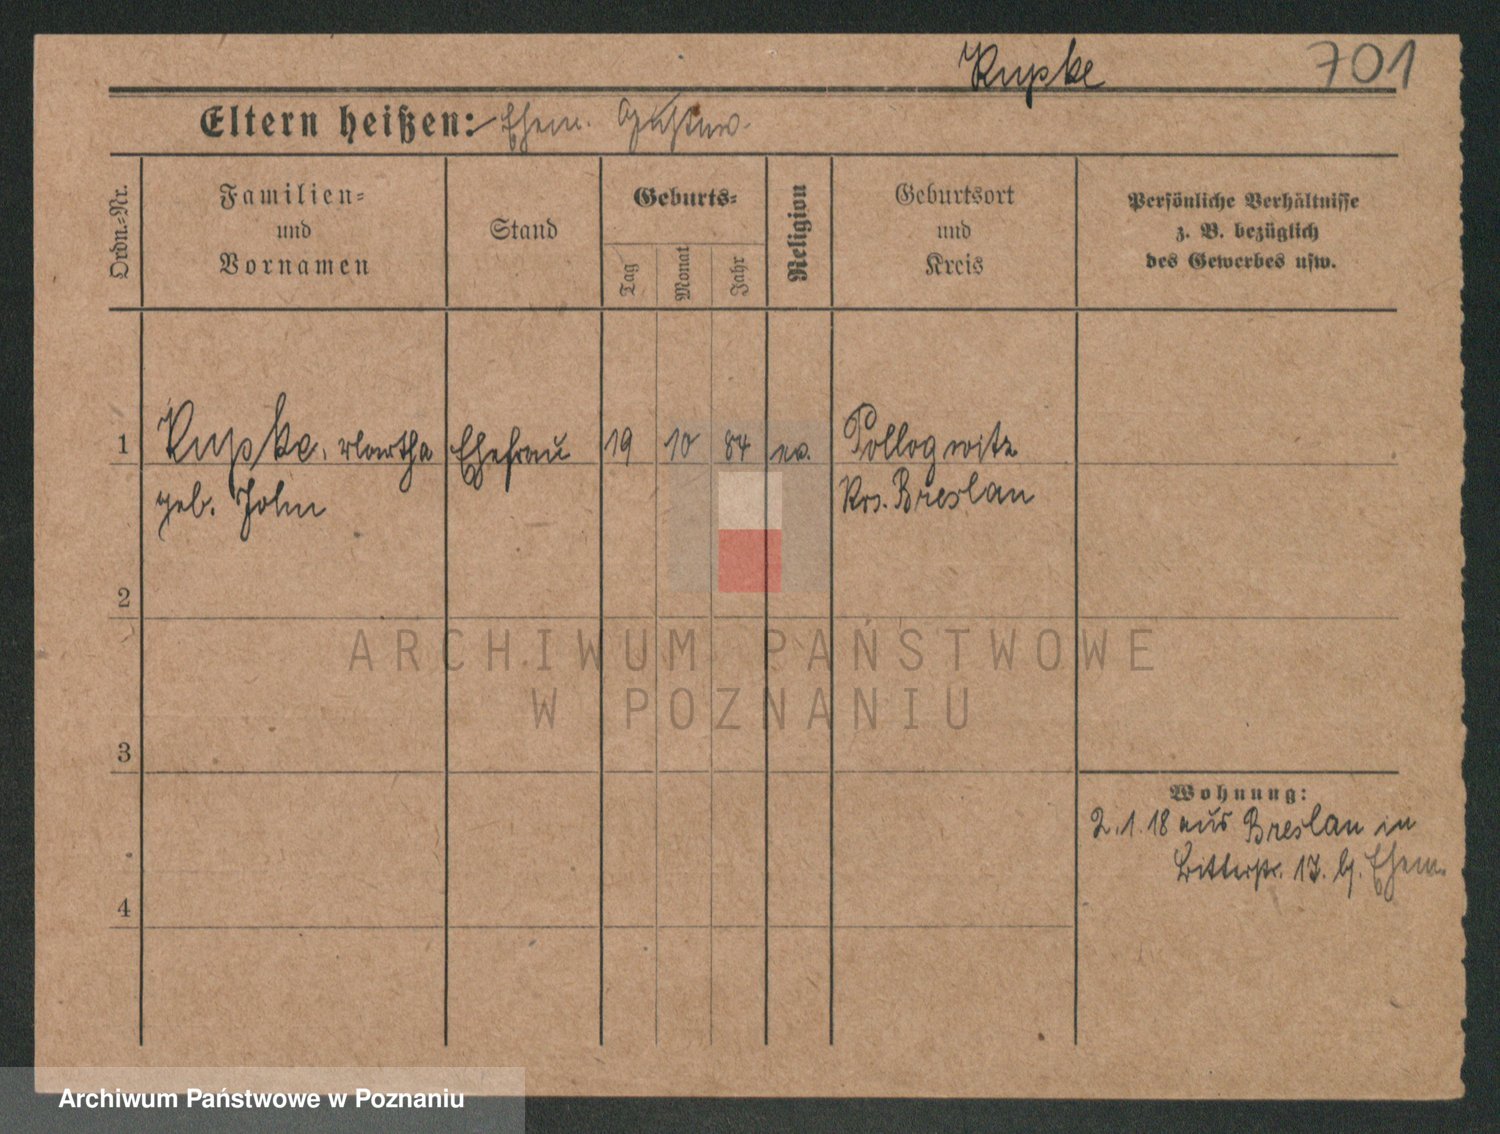 Kupke 701
Eltern heißen: Ehem. Gustav.
Ordn.=Nr.
Familien=
und
Vornamen
Stand
Geburts=
Tag
Monat
Jahr
Religion
Geburtsort
und
Kreis
Persönliche Verhältnisse
z. B. bezüglich
des Gewerbes usw.
1 Kupke, Martha Ehefrau 19 10 84 ev.
geb. John Krs. Breslau
2
ARCHIWUM PAŃSTWOWE
W POZNANIU
3
Wohnung:
2.1.18 aus Breslau in
Bitterstr. 17. b. Ehem.
4
Archiwum Państwowe w Poznaniu